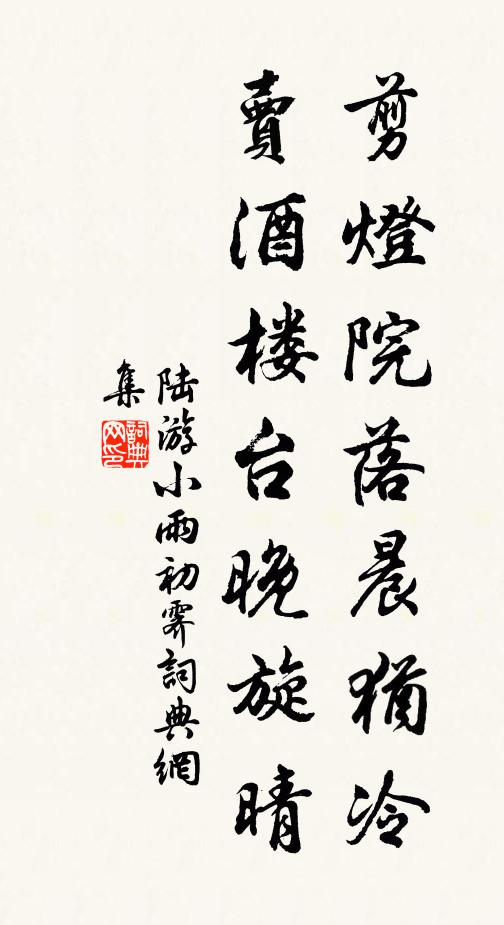 剪燈院落晨猶冷
賣酒楼台晚旋晴
陆游小雨初霽詞典網
集
詞典
网印